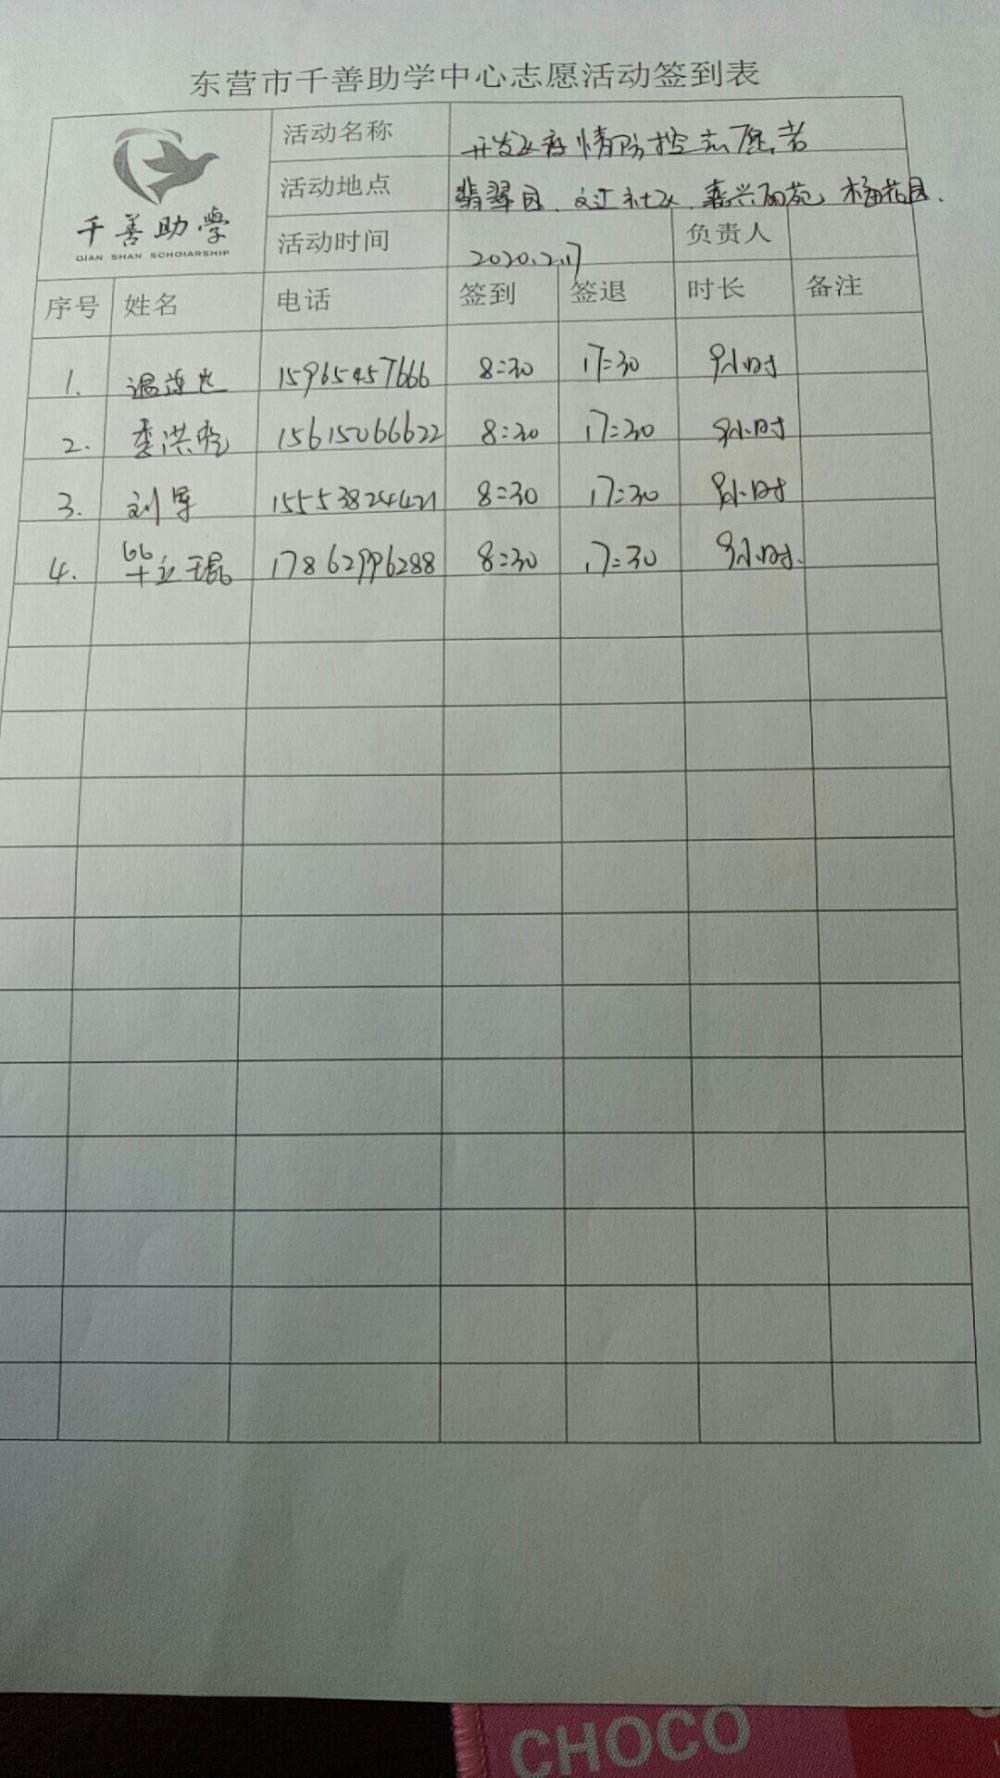 东营市千善助学中心志愿活动签到表
千善助学
QIAN SHAN SCHOlARSHIP
活动名称 开发区疫情防控志愿者
活动地点 翡翠园、文汇社区、嘉兴丽苑、梅花园、
活动时间 2020.2.17 负责人
序号 姓名 电话 签到 签退 时长 备注
1. 15965457666 8:30 17:30 9小时
2. 李洪乾 15615066622 8:30 17:30 9小时
3. 刘军 15553824421 8:30 17:30 9小时
4. 毕立琨 17862996288 8:30 17:30 9小时.
CHOCO